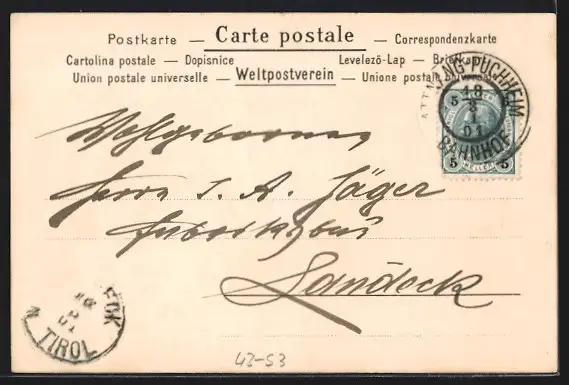 Postkarte — Carte postale — Correspondenzkarte
Cartolina postale — Dopisnice Levelező-Lap — Briefkaart
Union postale universelle — Weltpostverein — Unione postale universale
ATTNANG-PUCHHEIM
18
5 3
01
BAHNHOF
5 HELLER 5
Wohlgeboren
Herrn I. A. Jäger
Landeck
ECK
TIROL
43-53